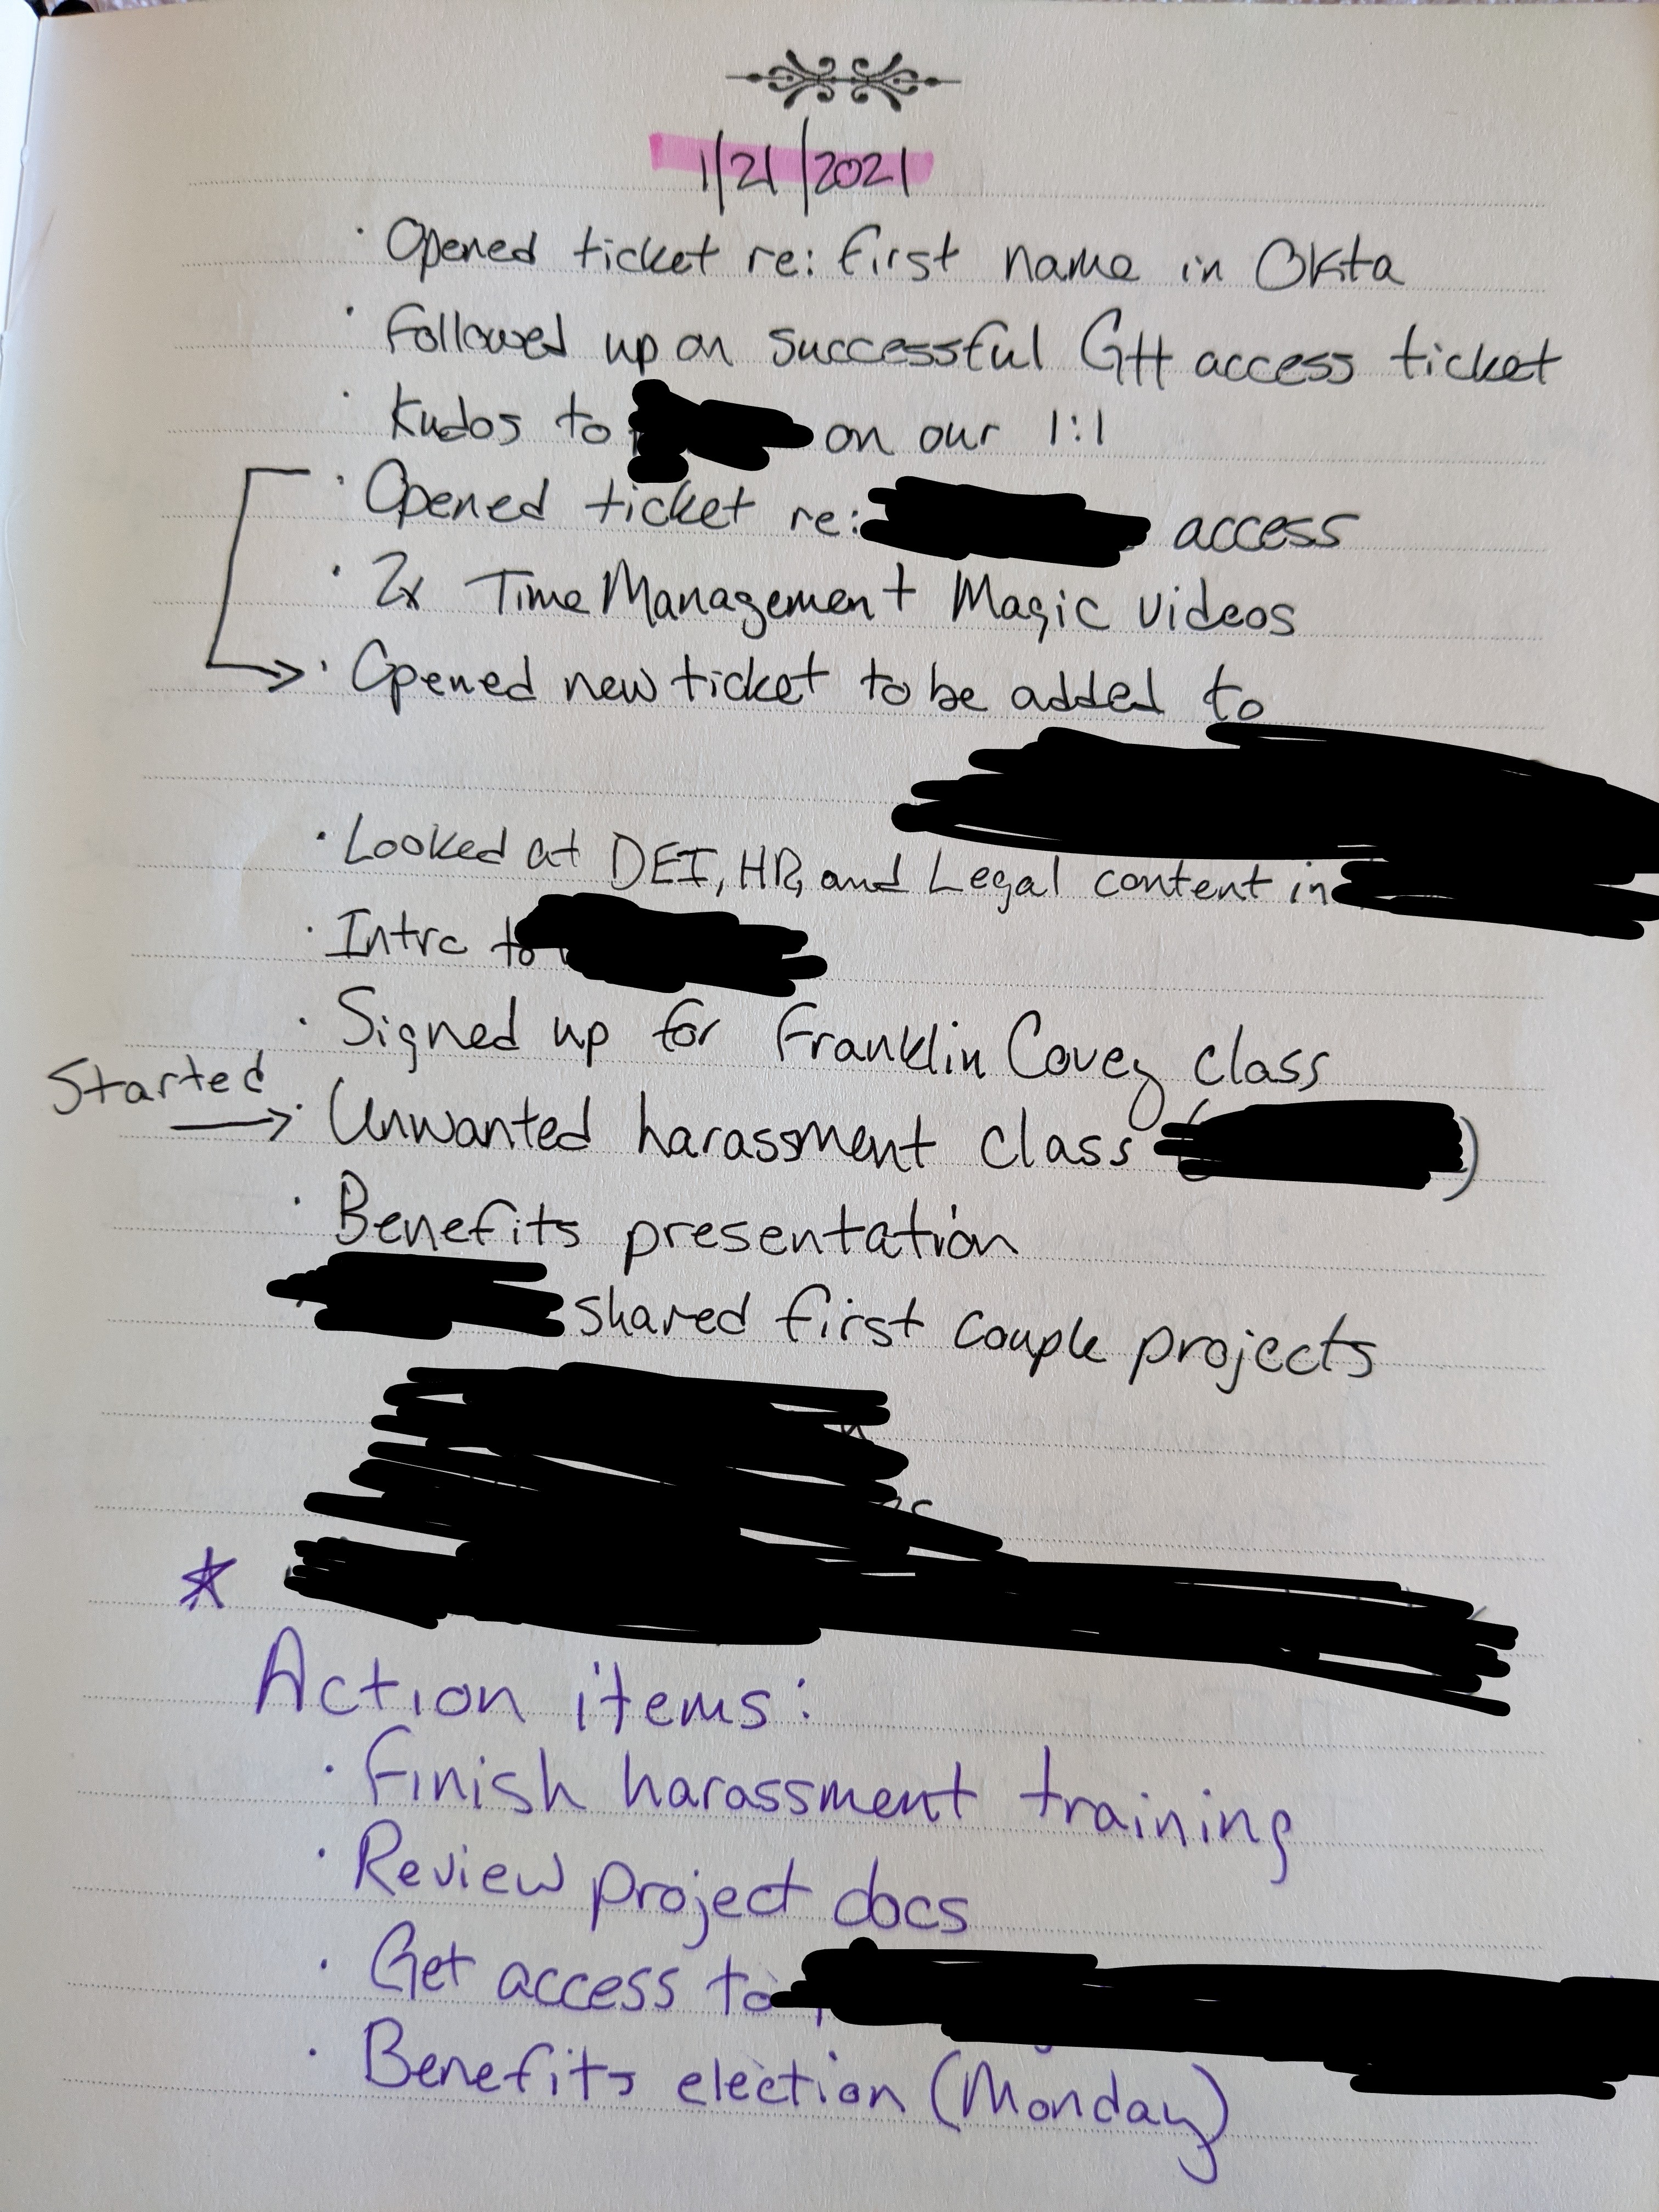 1/21/2021
· Opened ticket re: first name in Okta
· Followed up on successful GH access ticket
· Kudos to on our 1:1
· Opened ticket re: access
· 2x Time Management Magic videos
· Opened new ticket to be added to
· Looked at DEI, HR, and Legal content in
· Intro to
· Signed up for Franklin Covey class
Started
· Unwanted harassment class ( )
· Benefits presentation
shared first couple projects
Action items:
· Finish harassment training
· Review project docs
· Get access to
· Benefits election (Monday)